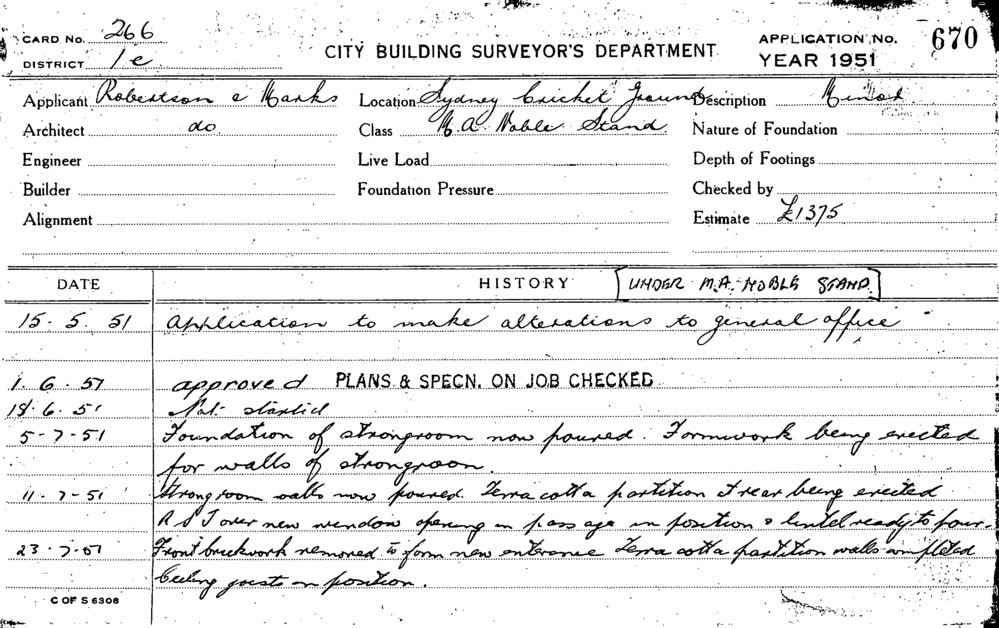 CARD No. 266
DISTRICT 1e
CITY BUILDING SURVEYOR'S DEPARTMENT
APPLICATION No. 670
YEAR 1951
Applicant Robertson & Marks Location Sydney Cricket Ground Description Minor
Architect do Class M.A. Noble Stand Nature of Foundation
Engineer Live Load Depth of Footings
Builder Foundation Pressure Checked by
Alignment Estimate £1375
DATE HISTORY [UNDER M.A. NOBLE STAND]
15.5.51 Application to make alterations to general office
1.6.51 approved PLANS & SPECN. ON JOB CHECKED
18.6.51 Not started
5-7-51 Foundation of strongroom now poured. Formwork being erected
for walls of strongroom.
11.7-51 Strongroom walls now poured. Terra cotta partition rear being erected
R S J over new window opening in passage in position & lintel ready to pour.
23-7-51 Front brickwork removed to form new entrance Terra cotta partition walls completed
Ceiling joists in position.
C OF S 6306